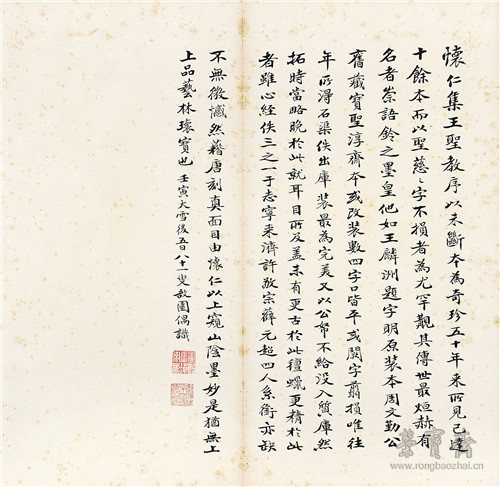 懷仁集王聖教序以未斷本為奇珍五十年來所見已達
十餘本而以聖慈之字不損者為尤罕觏其傳世最烜赫有
名者崇語鈴之墨皇他如王麟洲題字明原裝本周文勤公
舊藏寶聖淳齋本或改裝數四字口皆平或闕字翦損唯往
年所淂石渠佚出庫裝最為完美又以公帑不給没入質庫然
拓時當略晚於此就耳目所及蓋未有更古於此氊蠟更精於此
者雖心經佚三之一于志寧来濟許敬宗薛元超四人系銜亦缺
不無微憾然藉唐刻真面目由懷仁以上窺山陰墨妙是猶無上
上品藝林瓌寶也 壬寅大雪後五日八十一叟啟圃偶識
榮寶齋
www.rongbaozhai.cn